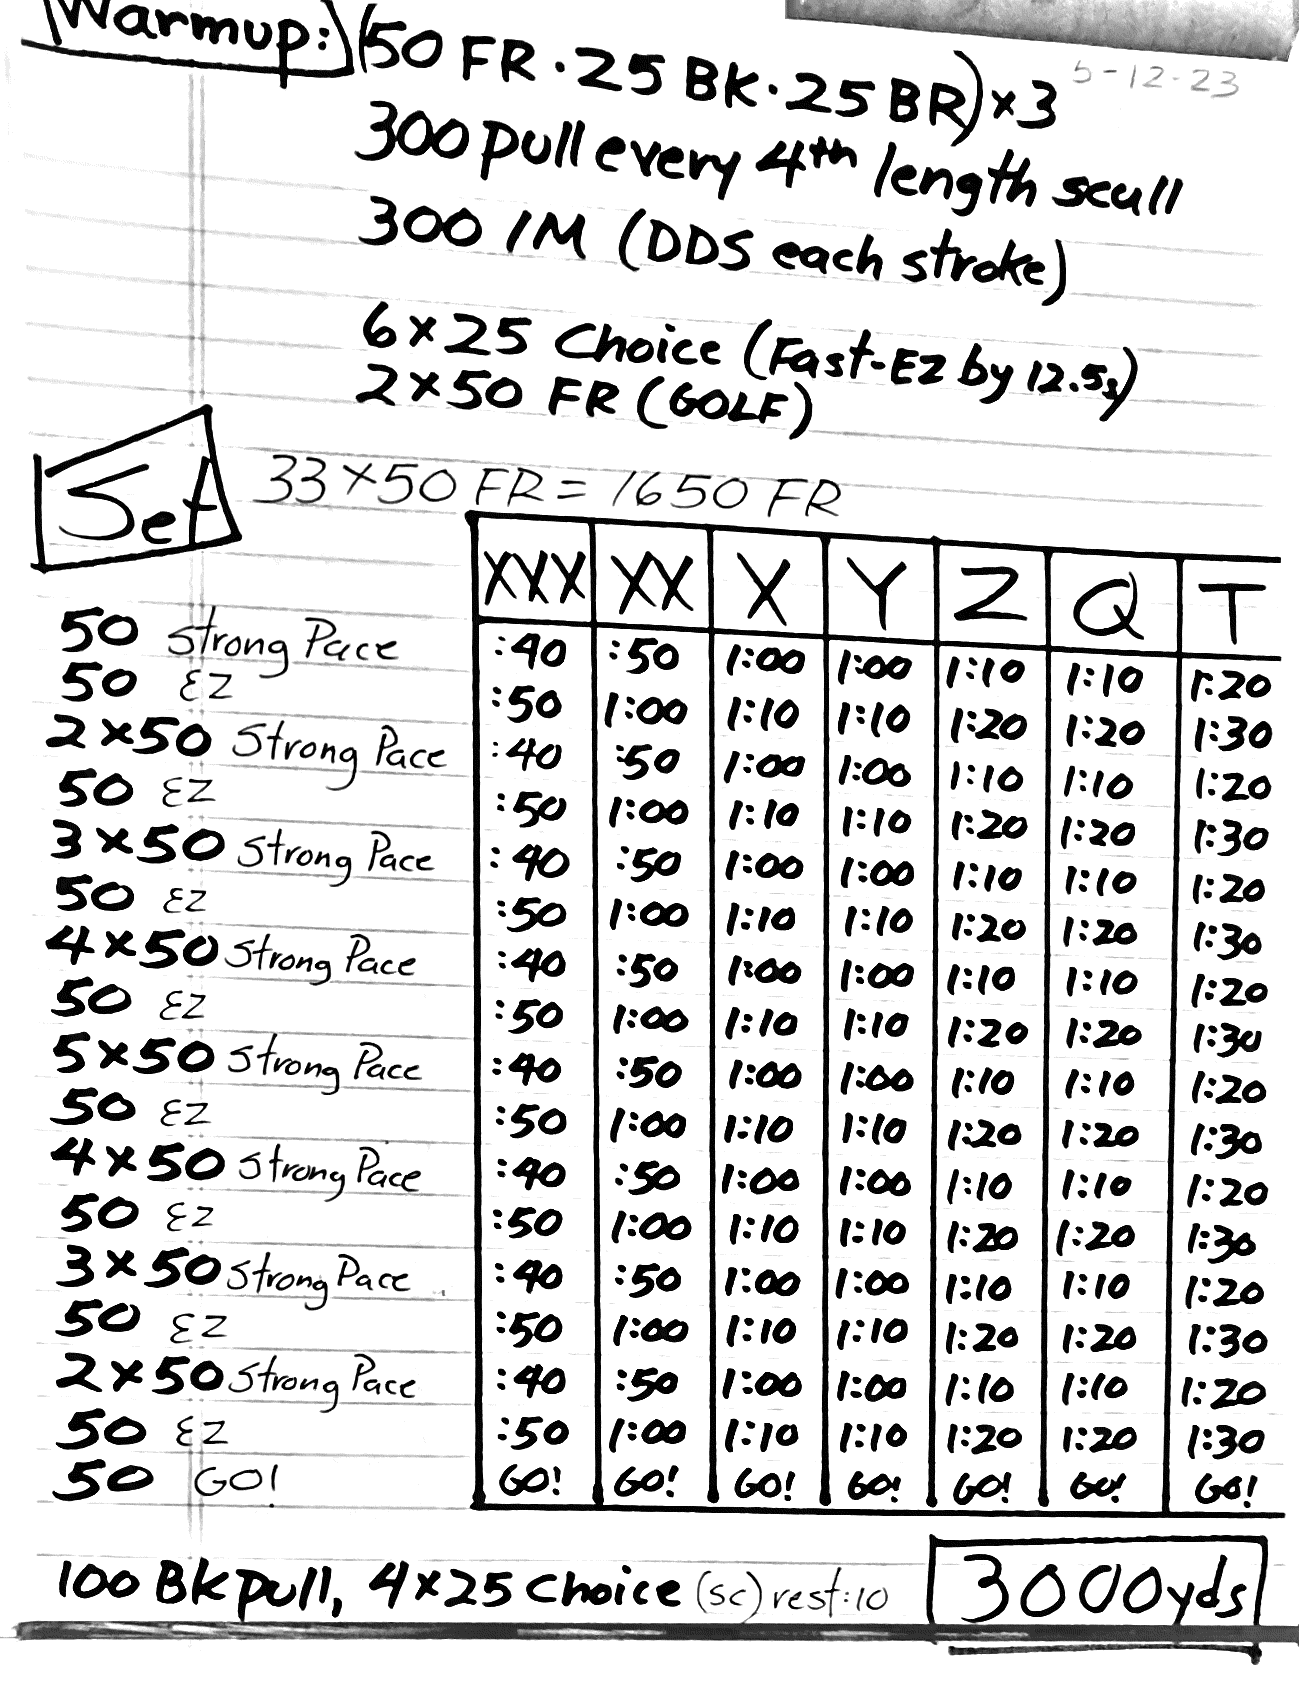 Warmup: (50 FR · 25 BK · 25 BR) x 3
5-12-23
300 pull every 4th length scull
300 IM (DDS each stroke)
6x25 Choice (Fast-EZ by 12.5s)
2x50 FR (GOLF)
Set 33x50 FR = 1650 FR
XXX XX X Y Z Q T
50 Strong Pace :40 :50 1:00 1:00 1:10 1:10 1:20
50 EZ :50 1:00 1:10 1:10 1:20 1:20 1:30
2x50 Strong Pace :40 :50 1:00 1:00 1:10 1:10 1:20
50 EZ :50 1:00 1:10 1:10 1:20 1:20 1:30
3x50 Strong Pace :40 :50 1:00 1:00 1:10 1:10 1:20
50 EZ :50 1:00 1:10 1:10 1:20 1:20 1:30
4x50 Strong Pace :40 :50 1:00 1:00 1:10 1:10 1:20
50 EZ :50 1:00 1:10 1:10 1:20 1:20 1:30
5x50 Strong Pace :40 :50 1:00 1:00 1:10 1:10 1:20
50 EZ :50 1:00 1:10 1:10 1:20 1:20 1:30
4x50 Strong Pace :40 :50 1:00 1:00 1:10 1:10 1:20
50 EZ :50 1:00 1:10 1:10 1:20 1:20 1:30
3x50 Strong Pace :40 :50 1:00 1:00 1:10 1:10 1:20
50 EZ :50 1:00 1:10 1:10 1:20 1:20 1:30
2x50 Strong Pace :40 :50 1:00 1:00 1:10 1:10 1:20
50 EZ :50 1:00 1:10 1:10 1:20 1:20 1:30
50 GO! GO! GO! GO! GO! GO! GO! GO!
100 BK pull, 4x25 Choice (sc) rest :10 3000yds